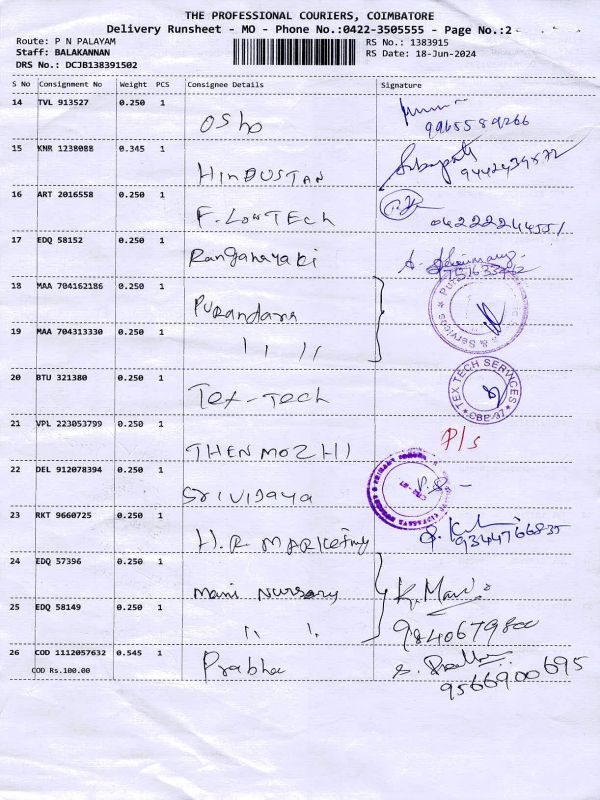 THE PROFESSIONAL COURIERS, COIMBATORE
Delivery Runsheet - MO - Phone No.:0422-3505555 - Page No.:2
Route: P N PALAYAM
RS No.: 1383915
Staff: BALAKANNAN
RS Date: 18-Jun-2024
DRS No.: DCJB138391502
S No Consignment No Weight PCS Consignee Details Signature
14 TVL 913527 0.250 1 Osho
9965589266
15 KNR 1238088 0.345 1 HINDUSTAN
9442439872
16 ART 2016558 0.250 1 F-LowTech
04222224551
17 EDQ 58152 0.250 1 Ranganayaki
18 MAA 704162186 0.250 1 Purandara
& Services
19 MAA 704313330 0.250 1 " "
20 BTU 321380 0.250 1 Tex-Tech
TEX TECH SERVICES
CBE-37
21 VPL 223053799 0.250 1 THENMOZHI P/s
22 DEL 912078394 0.250 1 Srivijaya
23 RKT 9660725 0.250 1 H.R MARKETING
9344766835
24 EDQ 57396 0.250 1 Mani Nursary K. Mani
25 EDQ 58149 0.250 1 " "
9840679800
26 COD 1112057632 0.545 1 Prabha
COD Rs.100.00
9566900695